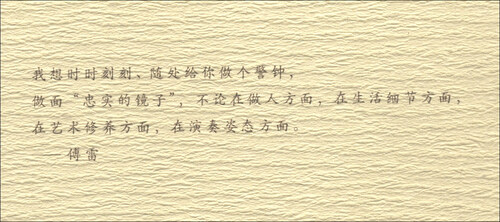 我想时时刻刻、随处给你做个警钟，
做面“忠实的镜子”，不论在做人方面，在生活细节方面，
在艺术修养方面，在演奏姿态方面。
——傅雷